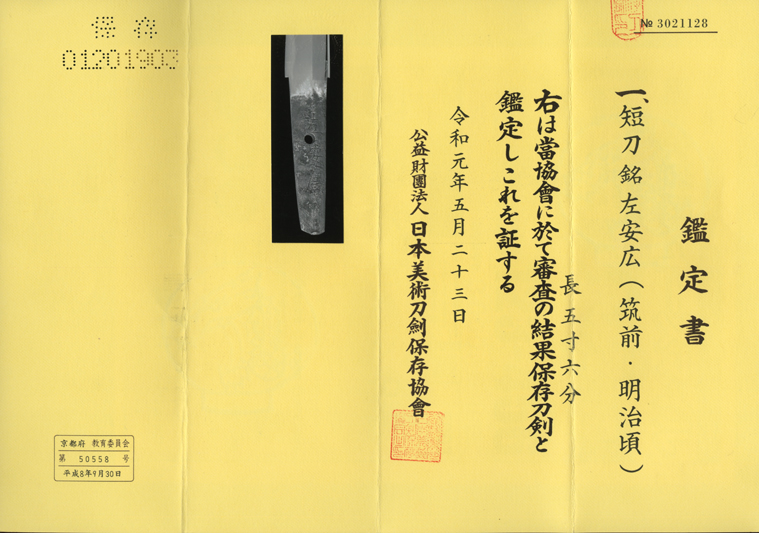 № 3021128
鑑定書
一、短刀 銘 左安広（筑前・明治頃）
長五寸六分
右は當協會に於て審査の結果保存刀剣と
鑑定しこれを証する
令和元年五月二十三日
公益財團法人 日本美術刀劍保存協會
保存
01201903
京都府 教育委員会
第 50558 号
平成8年9月30日